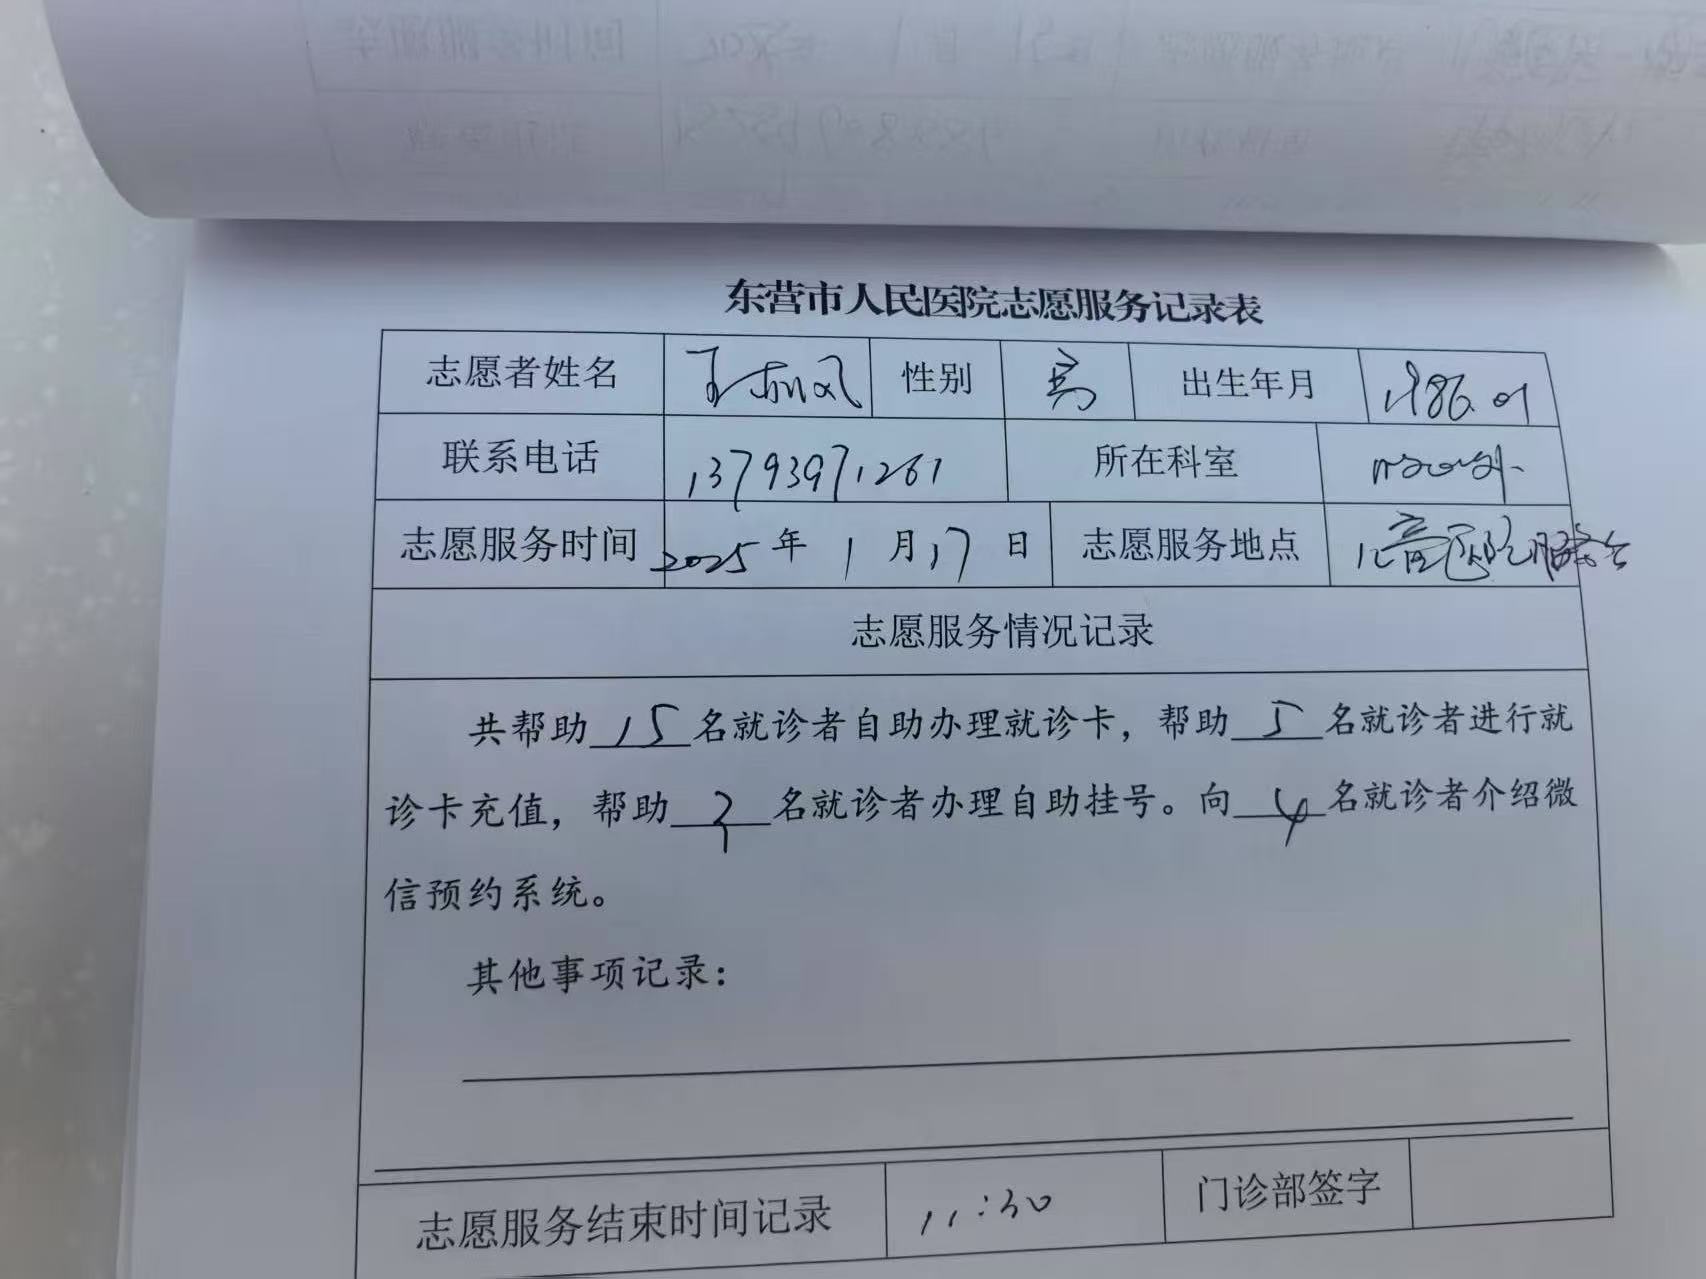 东营市人民医院志愿服务记录表
志愿者姓名 性别 男 出生年月 1986.01
联系电话 13793971261 所在科室
志愿服务时间 2025年1月17日 志愿服务地点 儿童医院服务台
志愿服务情况记录
共帮助15名就诊者自助办理就诊卡，帮助5名就诊者进行就
诊卡充值，帮助名就诊者办理自助挂号。向4名就诊者介绍微
信预约系统。
其他事项记录：
志愿服务结束时间记录 11:30 门诊部签字